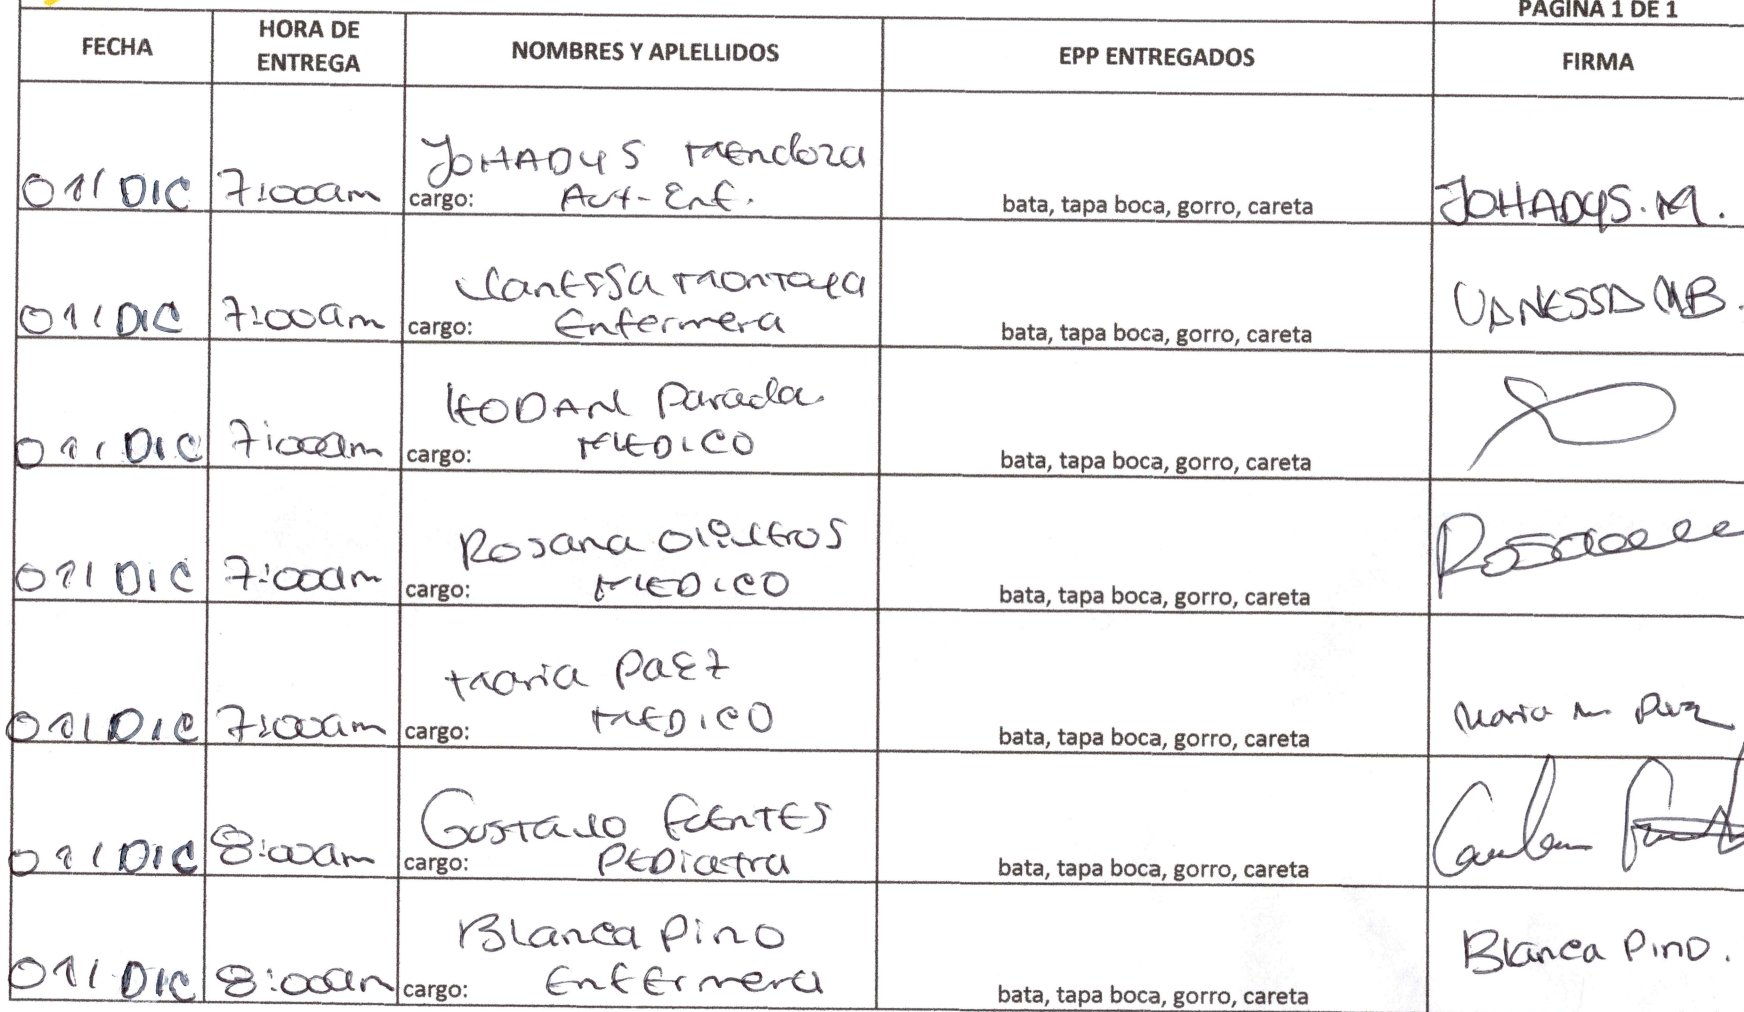 PAGINA 1 DE 1
FECHA HORA DE ENTREGA NOMBRES Y APLELLIDOS EPP ENTREGADOS FIRMA
01/DIC 7:00am JOHADYS Mendoza
cargo: Aux-Enf. bata, tapa boca, gorro, careta JOHADYS.M.
01/DIC 7:00am Vanessa Montoya
cargo: Enfermera bata, tapa boca, gorro, careta VANESSA MB.
01/DIC 7:00am Parada
cargo: MEDICO bata, tapa boca, gorro, careta
01/DIC 7:00am Rosana
cargo: MEDICO bata, tapa boca, gorro, careta
01/DIC 7:00am Maria PaEz
cargo: MEDICO bata, tapa boca, gorro, careta Maria M Paez
01/DIC 8:00am GUSTAVO FUENTES
cargo: PEDiatra bata, tapa boca, gorro, careta
01/DIC 8:00am Blanca Pino
cargo: Enfermera bata, tapa boca, gorro, careta Blanca Pino.